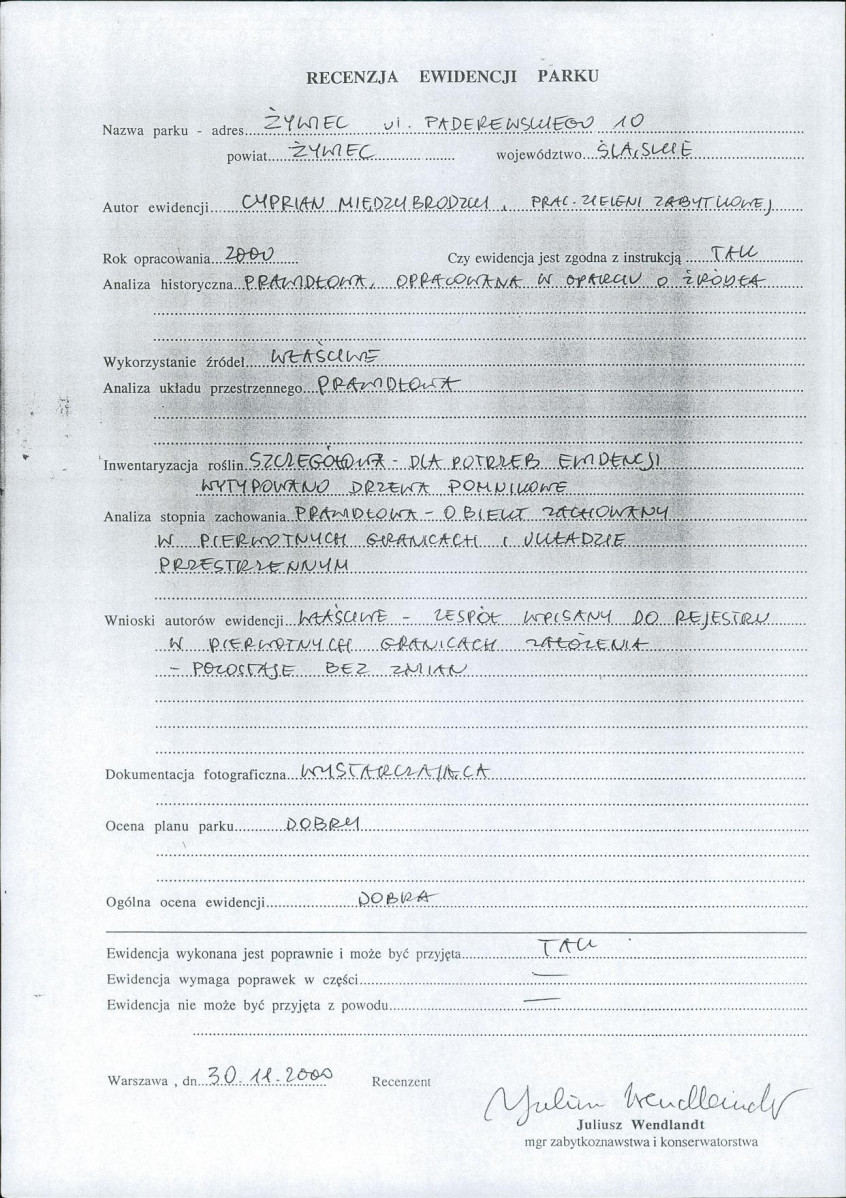 RECENZJA EWIDENCJI PARKU
Nazwa parku - adres ŻYWIEC ul. PADEREWSKIEGO 10
powiat ŻYWIEC województwo ŚLĄSKIE
Autor ewidencji CYPRIAN MIĘDZYBRODZKI, PRAC. ZIELENI ZABYTKOWEJ
Rok opracowania 2000 Czy ewidencja jest zgodna z instrukcją TAK
Analiza historyczna PRAWIDŁOWA, OPRACOWANA W OPARCIU O ŹRÓDŁA
Wykorzystanie źródeł WŁAŚCIWE
Analiza układu przestrzennego PRAWIDŁOWA
Inwentaryzacja roślin SZCZEGÓŁOWA - DLA POTRZEB EWIDENCJI
WYTYPOWANO DRZEWA POMNIKOWE
Analiza stopnia zachowania PRAWIDŁOWA - OBIEKT ZACHOWANY
W PIERWOTNYCH GRANICACH I UKŁADZIE
PRZESTRZENNYM
Wnioski autorów ewidencji WŁAŚCIWE - ZESPÓŁ WPISANY DO REJESTRU
W PIERWOTNYCH GRANICACH ZAŁOŻENIA
- POZOSTAJE BEZ ZMIAN
Dokumentacja fotograficzna WYSTARCZAJĄCA
Ocena planu parku DOBRY
Ogólna ocena ewidencji DOBRA
Ewidencja wykonana jest poprawnie i może być przyjęta TAK
Ewidencja wymaga poprawek w części —
Ewidencja nie może być przyjęta z powodu —
Warszawa , dn. 30.11.2000 Recenzent
Juliusz Wendlandt
Juliusz Wendlandt
mgr zabytkoznawstwa i konserwatorstwa